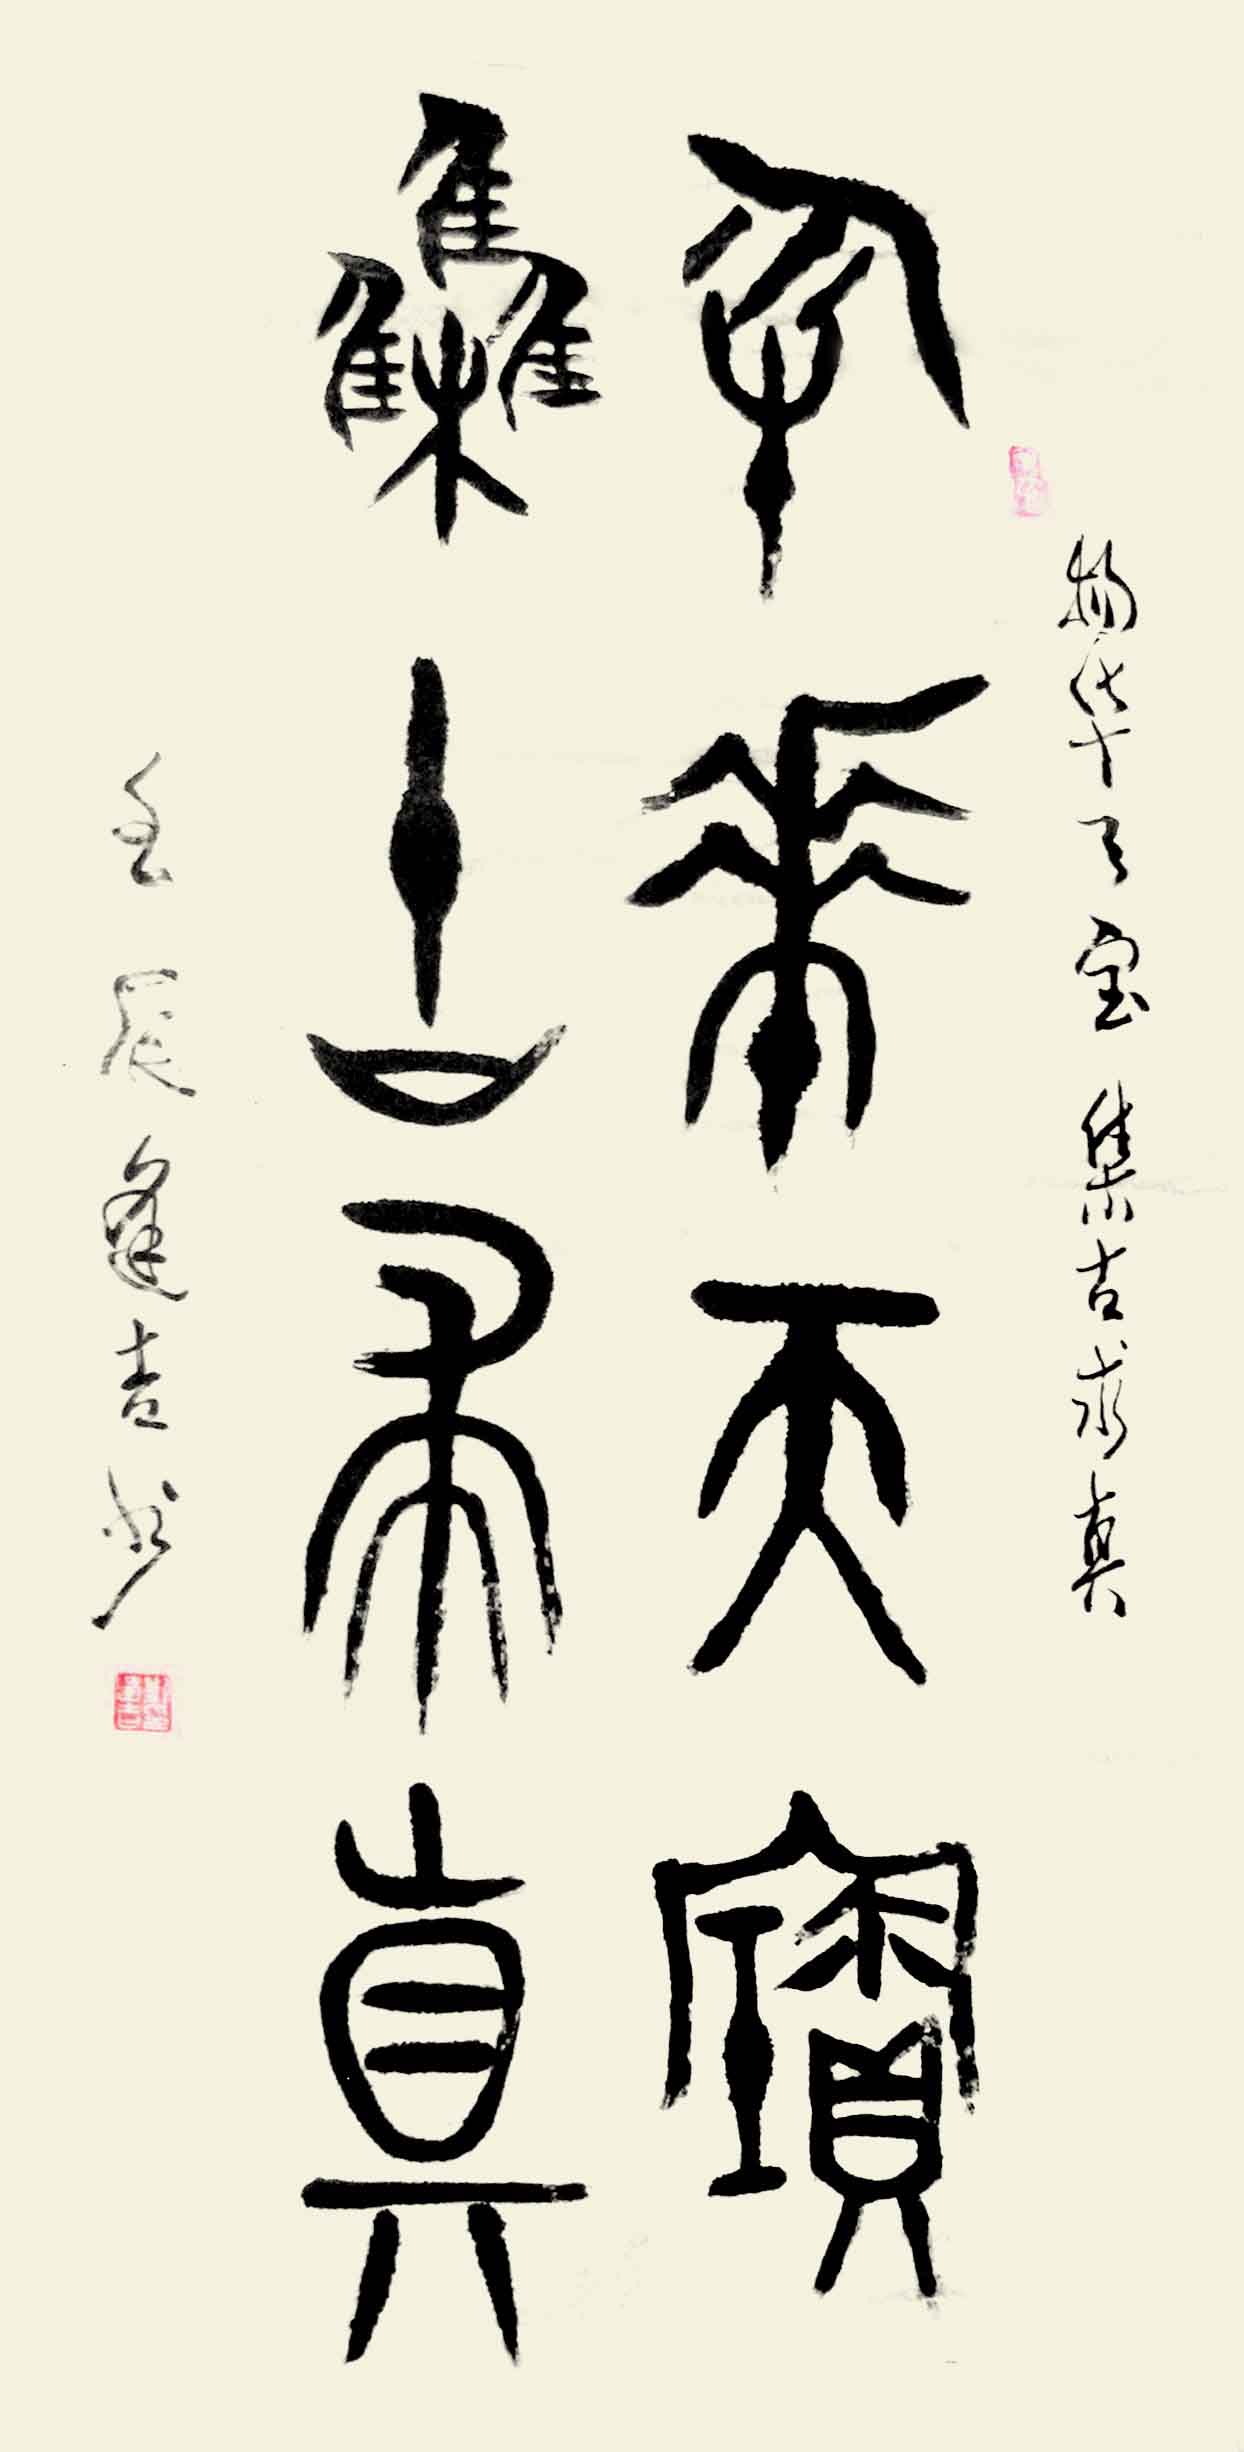 物華天寶
集古求真
物华天宝集古求真
壬辰逢吉书